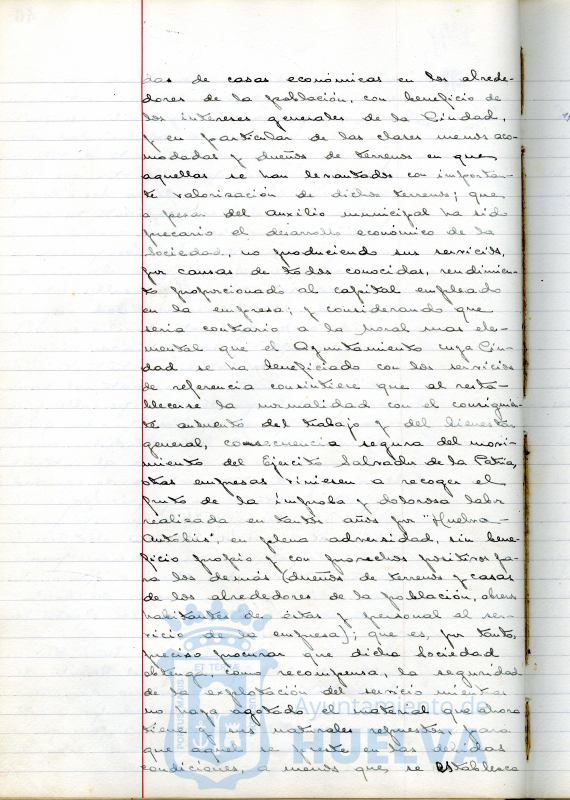 das de casas económicas en los alrede-
dores de la población, con beneficio de
los intereses generales de la Ciudad,
y en particular de las clases menos aco-
modadas y dueños de terrenos en que
aquellas se han levantados con importan-
te valorización de dichos terrenos; que
a pesar del auxilio municipal ha sido
precario el desarrollo económico de la
Sociedad, no produciendo sus servicios,
por causas de todos conocidas, rendimien-
to proporcionado al capital empleado
en la empresa; y considerando que
seria contrario a la moral mas ele-
mental que el Ayuntamiento cuya Ciu-
dad se ha beneficiado con los servicios
de referencia consintiere que al resta-
blecerse la normalidad con el consiguien-
te aumento del trabajo y del bienestar
general, consecuencia segura del movi-
miento del Ejercito Salvador de la Patria,
otras empresas viniesen a recoger el
fruto de la ímproba y dolorosa labor
realizada en tantos años por "Huelva-
Autobús", en plena adversidad, sin bene-
ficio propio y con provechos positivos pa-
ra los demás (dueños de terrenos y casas
de los alrededores de la población, obreros
habitantes de éstas y personal al ser-
vicio de la empresa); que es, por tanto,
preciso procurar que dicha Sociedad
obtenga, como recompensa, la seguridad
de la explotación del servicio mientras
no haya agotado el material que ahora
tiene y sus naturales repuestos, para
que aquel se preste en las debidas
condiciones, a menos que se establezca
Ayuntamiento de
HUELVA